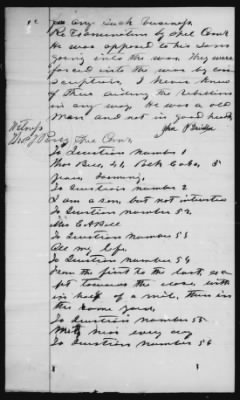 for any such business
Re Examination by Spel Com'r
He was opposed to his sons
going into the war. They were
forced into the war by con
scription. I never knew
of their aiding the rebellion
in any way. He was a old
Man and not in good health
Jno
Witness
The Com'r
To Question number 1
Thos Bell, 41, Polk Co Ga, 5
years farming.
To Question number 2
I am a son, but not interested
To Question number 52
Mrs E A Bell
To Question number 53
All my life
To Question number 54
From the first to the last, ex
cept towards the close, with
in half of a mile, then in
the same yard.
To Question number 55
Met her every day
To Question number 56